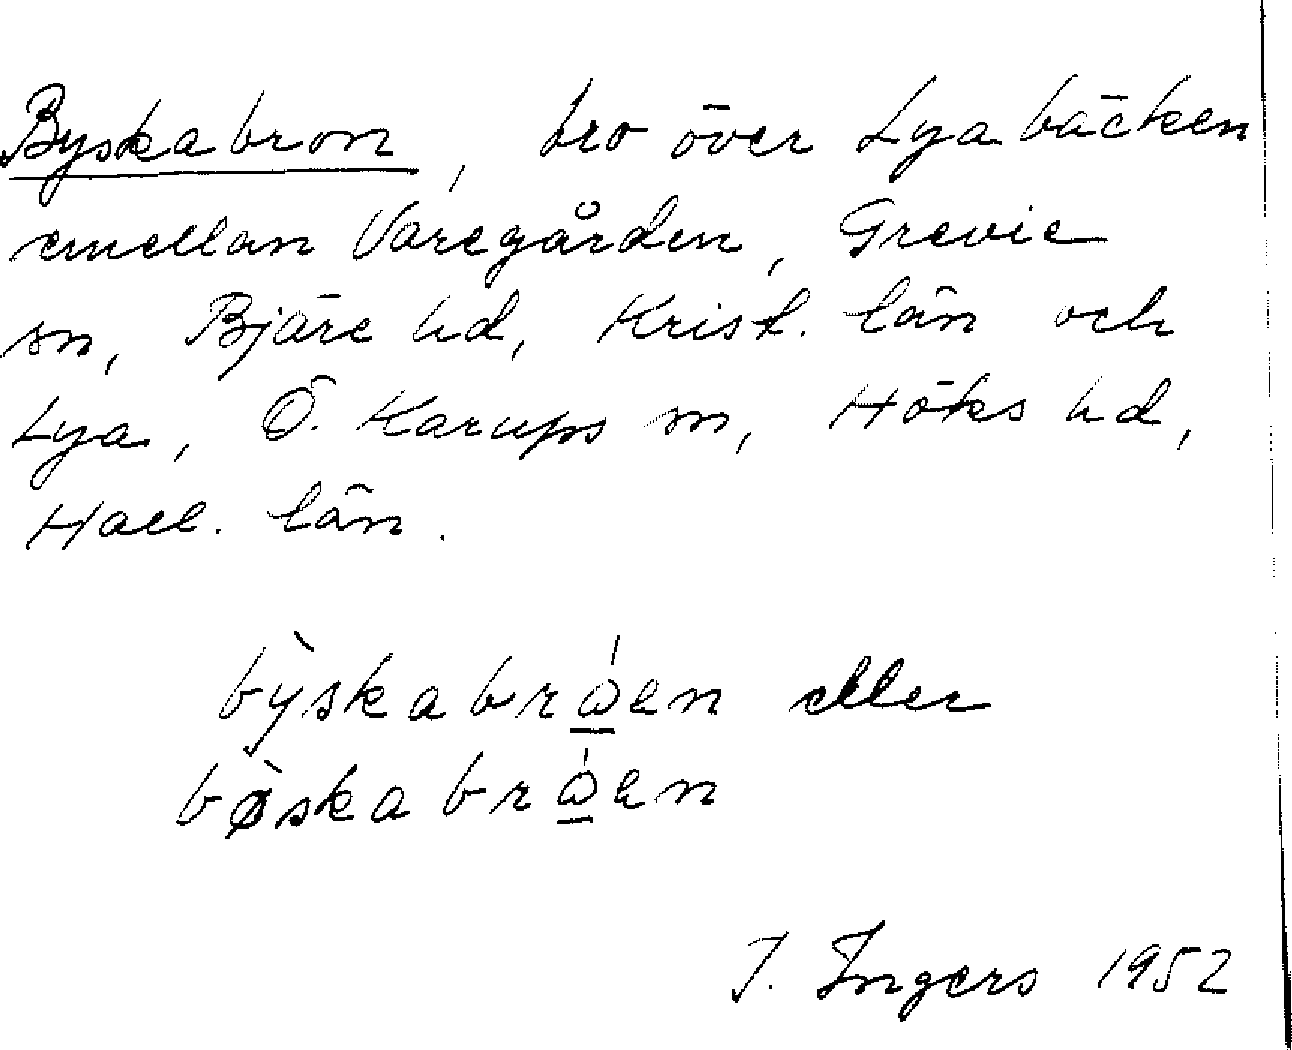 Byskabron, bro över Lyabäcken
emellan Varegården, Grevie
sn, Bjäre hd, Krist. län och
Lya, Ö. Karups sn, Höks hd,
Hall. län.
bỳskabrώ̲en eller
bø̀skabrώ̲en
I. Ingers 1952